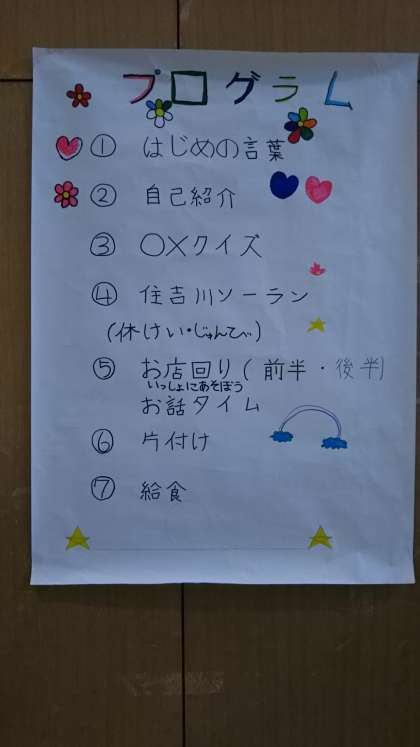 プログラム
① はじめの言葉
② 自己紹介
③ ○×クイズ
④ 住吉川ソーラン
(休けい・じゅんび)
⑤ お店回り(前半・後半)
いっしょにあそぼう
お話タイム
⑥ 片付け
⑦ 給食